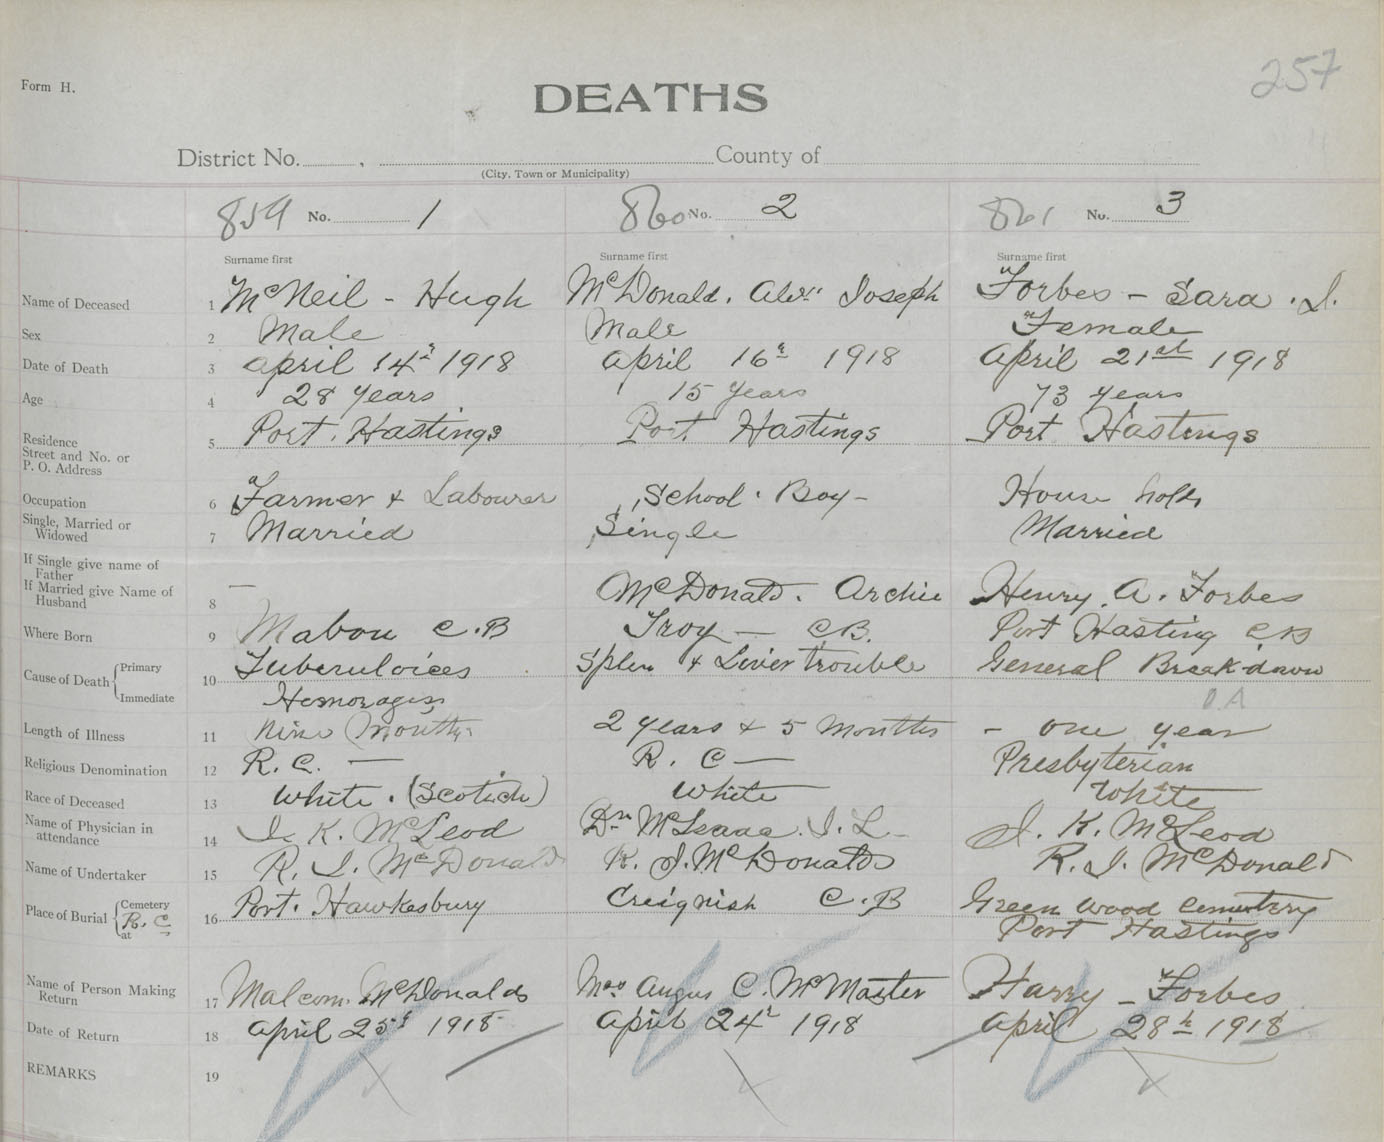 257
Form H.
DEATHS
District No. , County of
(City, Town or Municipality)
859 No. 1 860 No. 2 861 No. 3
Surname first Surname first Surname first
Name of Deceased 1 McNeil - Hugh McDonald. Alexr Joseph Forbes - Sara . J.
Sex 2 Male Male Female
Date of Death 3 April 14th 1918 April 16th 1918 April 21st 1918
Age 4 28 years 15 years 73 years
Residence
Street and No. or
P. O. Address 5 Port. Hastings Port Hastings Port Hastings
Occupation 6 Farmer & Labourer School. Boy - House hold
Single, Married or
Widowed 7 Married Single Married
If Single give name of
Father
If Married give Name of
Husband 8 — McDonald. Archie Henry. A. Forbes
Where Born 9 Mabou C.B Troy — C.B. Port Hasting CB
Cause of Death Primary 10 Tuberculoices Splen & Liver trouble General Break-down
Immediate Hemorages O.A
Length of Illness 11 Nine Months 2 years & 5 Months - one year
Religious Denomination 12 R.C. — R. C — Presbyterian
Race of Deceased 13 White. (Scotich) White White
Name of Physician in
attendance 14 J. K. McLeod Dr McIsaac. J. L- J. K. McLeod
Name of Undertaker 15 R. J. McDonald R. J. McDonald R. J. McDonald
Place of Burial Cemetery R. C at 16 Port. Hawkesbury Creignish C.B Green wood Cemetery
Port Hastings
Name of Person Making
Return 17 Malcom. McDonald Mrs Angus C. McMaster Harry - Forbes
Date of Return 18 April 25th 1918 April 24th 1918 April 28th 1918
REMARKS 19